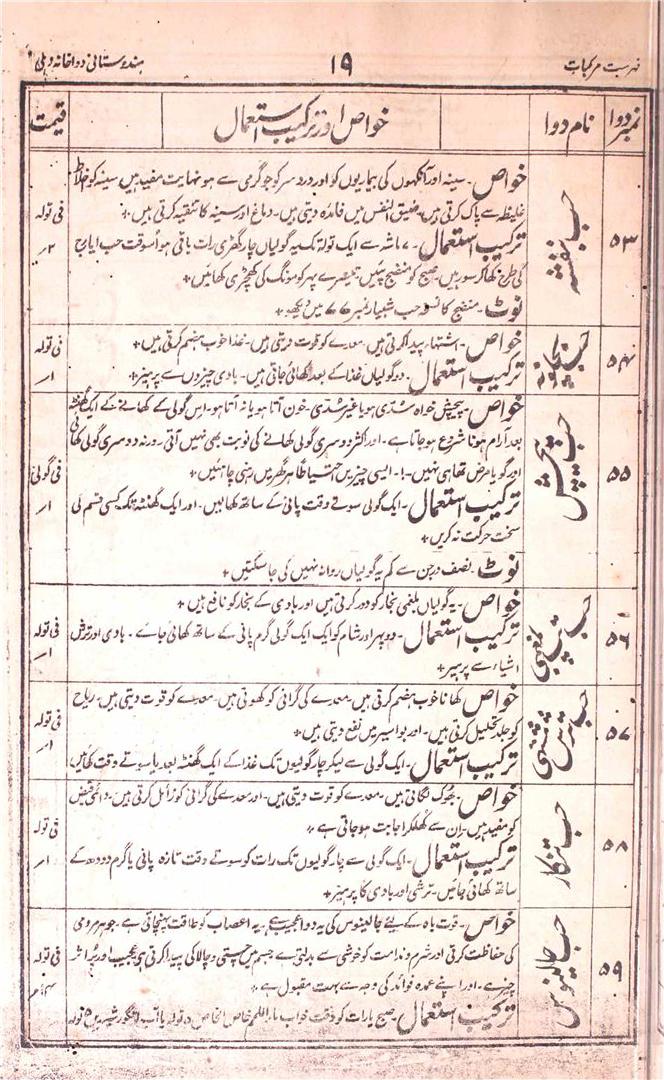 فہرست مرکبات ۱۹ ہندوستانی دواخانہ دہلی
نمبر دوا نام دوا خواص اور ترکیب استعمال قیمت
۵۳ حب بنفشہ
خواص۔ سینہ اور آنکھوں کی بیماریوں کو اور درد سر کو جو گرمی سے ہو نہایت مفید ہیں سینہ کو اخلاط
غلیظہ سے پاک کرتی ہیں۔ ضیق النفس میں فائدہ دیتی ہیں۔ دماغ اور سینہ کا تنقیہ کرتی ہیں +
ترکیب استعمال۔ ۷ ماشہ سے ایک تولہ تک یہ گولیاں چار گھڑی رات باقی ہو اُسوقت حب ایارج
کی طرح کھا کر سو رہیں۔ صبح کو منضج پئیں۔ تیسرے پہر کو مونگ کی کھچڑی کھائیں +
نوٹ۔ منضج کا نسخہ حب شبیار نمبر ۷۶ میں دیکھو +
فی تولہ
۲؍
۵۴
خواص۔ اشتہا پیدا کرتی ہیں۔ معدے کو قوت دیتی ہیں۔ غذا خوب ہضم کرتی ہیں +
ترکیب استعمال۔ دو گولیاں غذا کے بعد کھائی جاتی ہیں۔ بادی چیزوں سے پرہیز +
فی تولہ
۱؍
۵۵ حب پیچش
خواص۔ پیچش خواہ سُدّی ہو یا غیر سُدّی۔ خون آتا ہو یا نہ آتا ہو۔ اس گولی کے کھانے کے ایک گھنٹہ
بعد آرام ہونا شروع ہو جاتا ہے۔ اور اکثر دوسری گولی کھانے کی نوبت بھی نہیں آتی۔ ورنہ دوسری گولی کھائی
اور گویا مرض تھا ہی نہیں۔ ایسی چیزیں احتیاطاً ہر گھر میں رہنی چاہئیں +
ترکیب استعمال۔ ایک گولی سوتے وقت پانی کے ساتھ کھالیں۔ اور ایک گھنٹہ تک کسی قسم کی
سخت حرکت نہ کریں +
نوٹ۔ نصف درجن سے کم یہ گولیاں روانہ نہیں کی جاسکتیں +
فی گولی
۱؍
۵۶ حب تپ بلغمی
خواص۔ یہ گولیاں بلغمی بخار کو دور کرتی ہیں اور بادی کے بخار کو نافع ہیں +
ترکیب استعمال۔ دوپہر اور شام کو ایک ایک گولی گرم پانی کے ساتھ کھائی جائے۔ بادی اور ترش
اشیاء سے پرہیز +
فی تولہ
۱؍
۵۷ حب ترش مشتہی
خواص۔ کھانا خوب ہضم کرتی ہیں۔ معدے کی گرانی کو کھوتی ہیں۔ معدے کو قوت دیتی ہیں۔ ریاح
کو جلد تحلیل کرتی ہیں۔ اور بواسیر میں نفع دیتی ہیں +
ترکیب استعمال۔ ایک گولی سے لیکر چار گولیوں تک غذا کے ایک گھنٹہ بعد یا سوتے وقت کھائیں
فی تولہ
۱؍
۵۸ حب تنکار
خواص۔ بھوک لگاتی ہیں۔ معدے کو قوت دیتی ہیں۔ اور معدے کی گرانی کو زائل کرتی ہیں۔ دائمی قبض
کو مفید ہیں۔ ان سے کُھلکر اجابت ہو جاتی ہے +
ترکیب استعمال۔ ایک گولی سے چار گولیوں تک رات کو سوتے وقت تازہ پانی یا گرم دودھ کے
ساتھ کھائی جائیں۔ ترشی اور بادی کا پرہیز +
فی تولہ
۱؍
۵۹ حب جالینوس
خواص۔ قوت باہ کے لئے جالینوس کی یہ دوا عجیب ہے۔ یہ اعصاب کو طاقت پہنچاتی ہے۔ جوہر مردمی
کی حفاظت کرتی اور شرم و ندامت کو خوشی سے بدلتی ہے جسم میں چستی و چالاکی پیدا کرتی ہے عجیب اور پُر اثر
چیز ہے۔ اور اپنے عمدہ فوائد کی وجہ سے بہت مقبول ہے +
ترکیب استعمال۔ صبح یا رات کو وقت خواب ماء اللحم خاص الخاص ۵ تولہ
فی تولہ